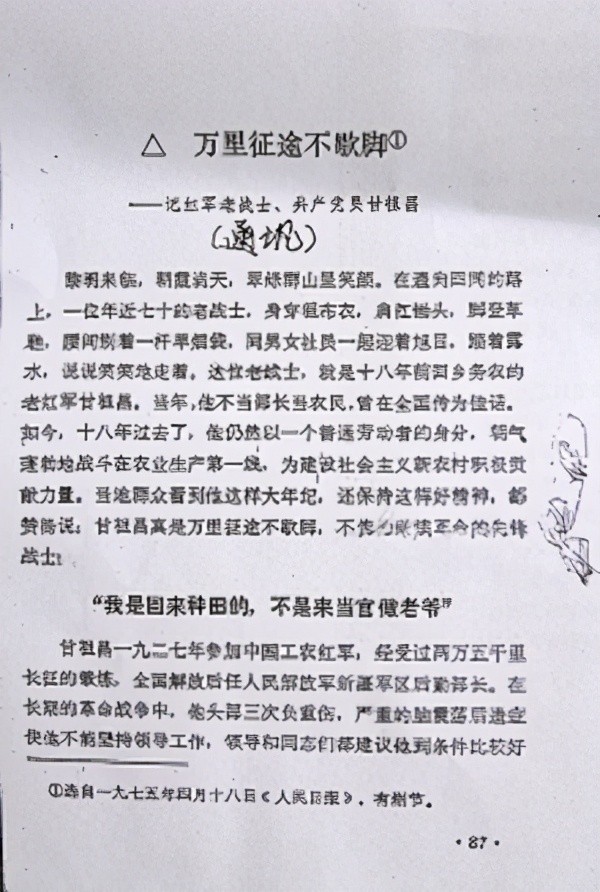 △ 万里征途不歇脚①
——记红军老战士、共产党员甘祖昌
(通讯)
黎明来临，朝霞满天，翠绿群山呈笑颜。在通向田间的路
上，一位年近七十的老战士，身穿粗布衣，肩扛锄头，脚登草
鞋，腰间别着一杆旱烟袋，同男女社员一起迎着旭日，踏着露
水，说说笑笑地走着。这位老战士，就是十八年前回乡务农的
老红军甘祖昌。当年，他不当部长当农民，曾在全国传为佳话。
如今，十八年过去了，他仍然以一个普通劳动者的身分，朝气
蓬勃地战斗在农业生产第一线，为建设社会主义新农村积极贡
献力量。当地群众看到他这样大年纪，还保持这样好精神，都
赞扬说：甘祖昌真是万里征途不歇脚，不愧为继续革命的先锋
战士！
“我是回来种田的，不是来当官做老爷”
甘祖昌一九二七年参加中国工农红军，经受过两万五千里
长征的锻炼，全国解放后任人民解放军新疆军区后勤部长。在
长期的革命战争中，他头部三次负重伤，严重的脑震荡后遗症
使他不能坚持领导工作，领导和同志们都建议他到条件比较好
①选自一九七五年四月十八日《人民日报》，有删节。
·87·